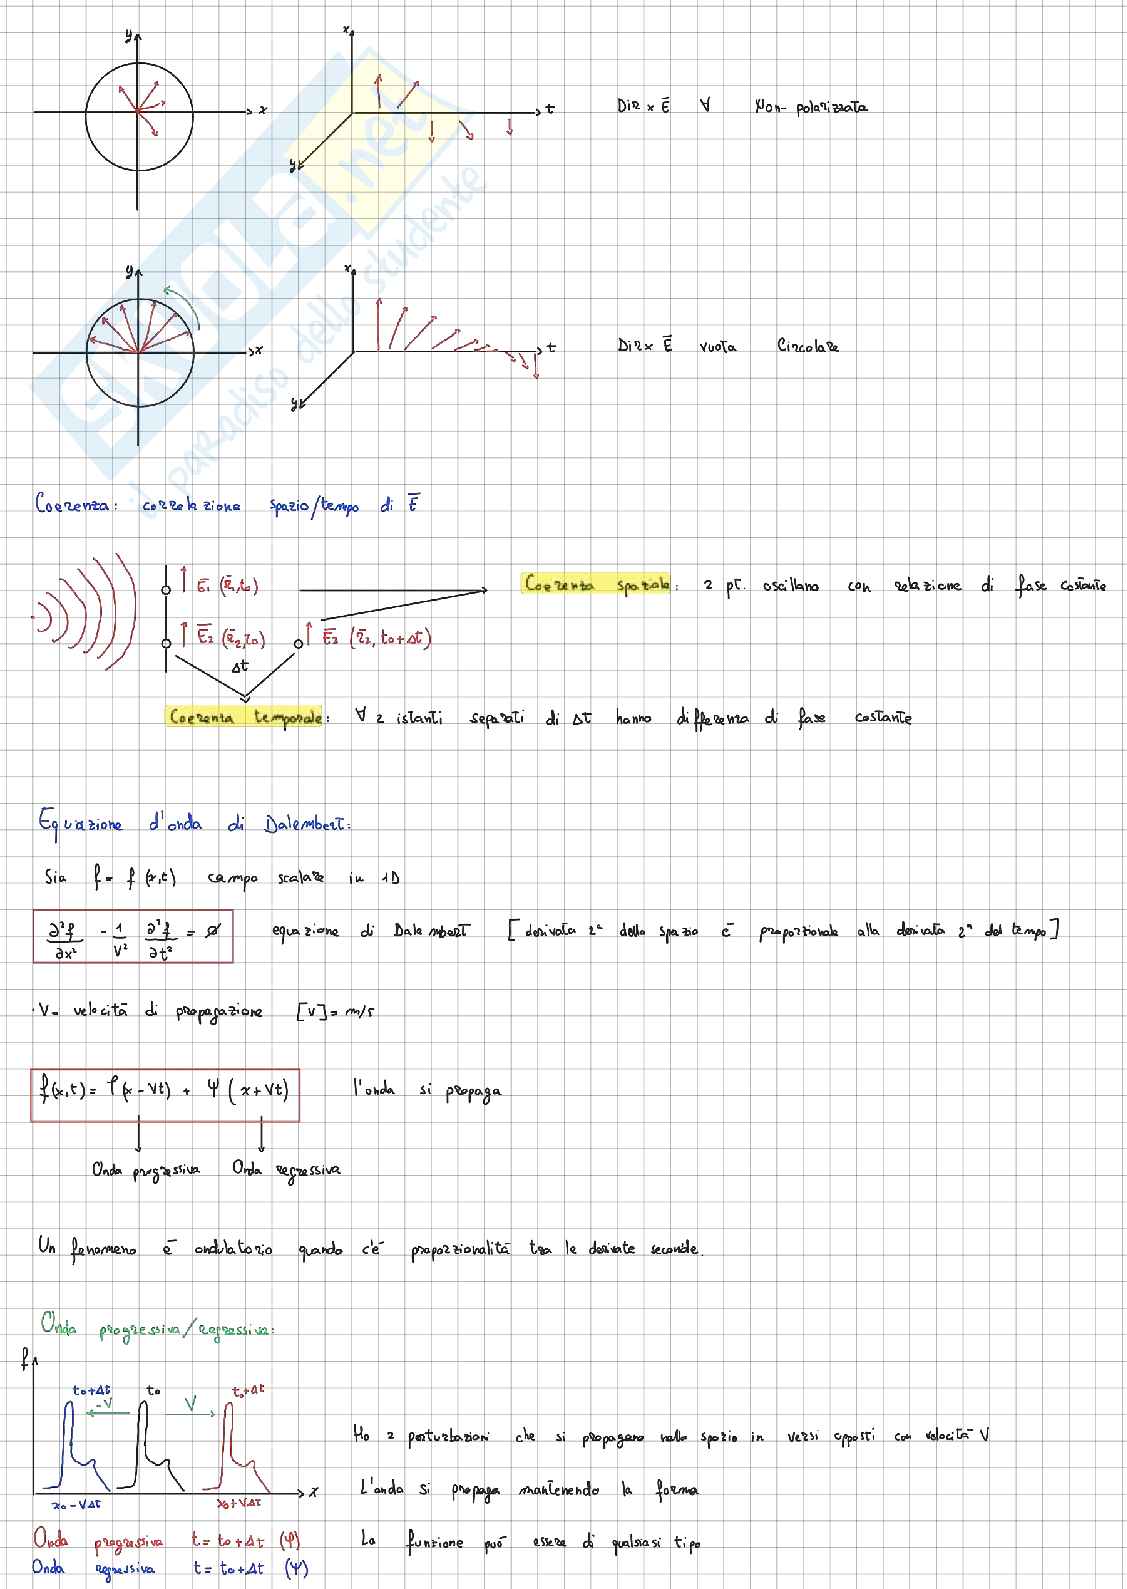 y
x
x
t
y
Dir x E̅ ∀ Non-polarizzata
SKUOLA.net
il paradiso dello studente
y
x
x
t
y
Dir x E̅ ruota Circolare
Coerenza: correlazione spazio/tempo di E̅
E̅1 (r̅1,t0)
Coerenza spaziale: 2 pt. oscillano con relazione di fase costante
E̅2 (r̅2,t0) E̅2 (r̅2, t0+Δt)
Δt
Coerenza temporale: ∀ 2 istanti separati di Δt hanno differenza di fase costante
Equazione d'onda di Dalembert:
Sia f = f (x,t) campo scalare in 1D
∂²f/∂x² - 1/V² ∂²f/∂t² = 0 equazione di Dalembert [derivata 2ª dello spazio è proporzionale alla derivata 2ª del tempo]
·V= velocità di propagazione [v]= m/s
f(x,t)= φ(x-Vt) + Ψ (x+Vt) l'onda si propaga
Onda progressiva Onda regressiva
Un fenomeno è ondulatorio quando c'è proporzionalità tra le derivate seconde.
Onda progressiva/regressiva:
f
t0+Δt t0 t0+Δt
-V V
Ho 2 perturbazioni che si propagano nello spazio in versi opposti con velocità V
x
L'onda si propaga mantenendo la forma
x0-VΔt x0+VΔt
Onda progressiva t= t0+Δt (φ) La funzione può essere di qualsiasi tipo
Onda regressiva t= t0+Δt (Ψ)